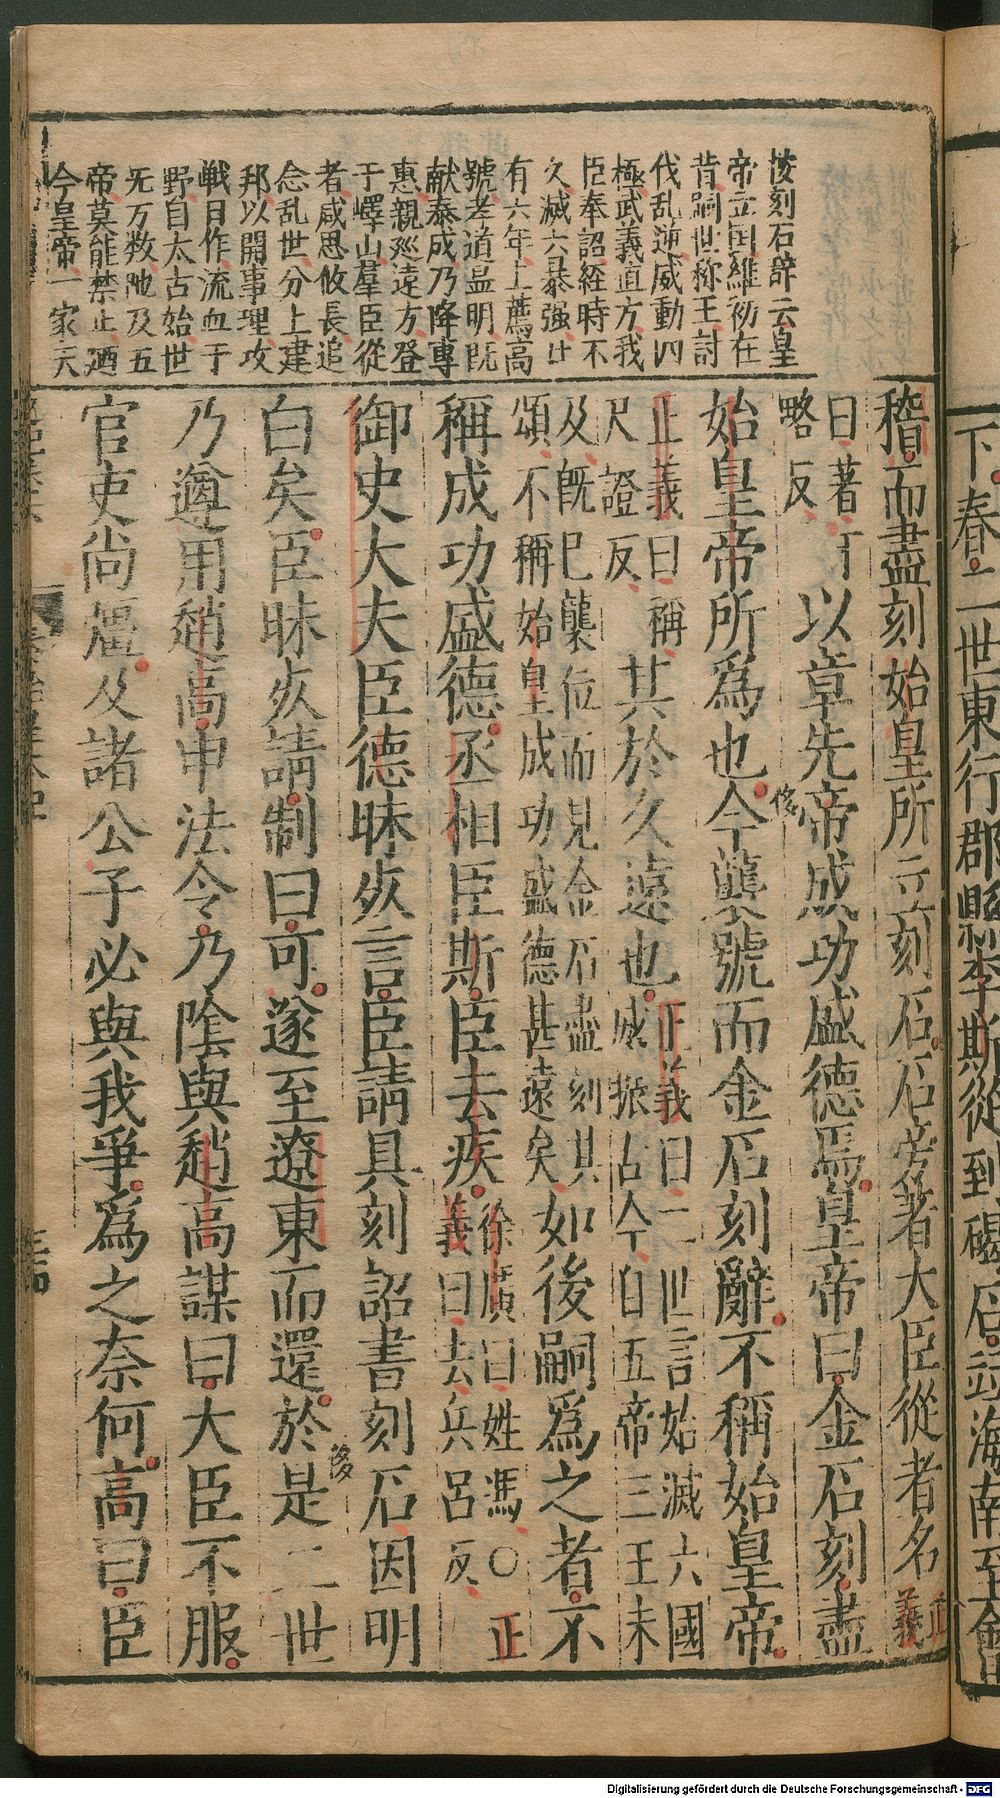 下春二世東行郡縣李斯從到碣石並海南至會
後刻石辞云皇
帝立囯維初在
昔嗣世称王討
伐乱逆威動四
極武義直方戎
臣奉詔経時不
久滅六暴强廿
有六年上薦髙
號孝道显明既
献泰成乃降專
惠親廵逺方登
于嶧山羣臣從
者咸思攸長追
念乱世分土建
邦以開事理攻
戦日作流血于
野自太古始世
无万数陁及五
帝莫能禁止廼
今皇帝一家天
稽而盡刻始皇所立刻石石旁著大臣從者名正義
曰著丁略反以章先帝成功盛德焉皇帝曰金石刻盡
始皇帝所爲也今襲號而金石刻辭不稱始皇帝
正義曰稱尺證反其於久遠也正義曰二世言始滅六國威振古今自五帝三王未
及既已襲位而見金石盡刻其頌不稱始皇成功盛德甚遠矣如後嗣爲之者不
稱成功盛德丞相臣斯臣去疾徐廣曰姓馮○正義曰去丘呂反
御史大夫臣德昧死言臣請具刻詔書刻石因明
白矣臣昧死請制曰可遂至遼東而還於是二世
乃遵用趙高申法令乃陰與趙高謀曰大臣不服
官吏尚彊及諸公子必與我爭爲之奈何高曰臣
Digitalisierung gefördert durch die Deutsche Forschungsgemeinschaft - DFG